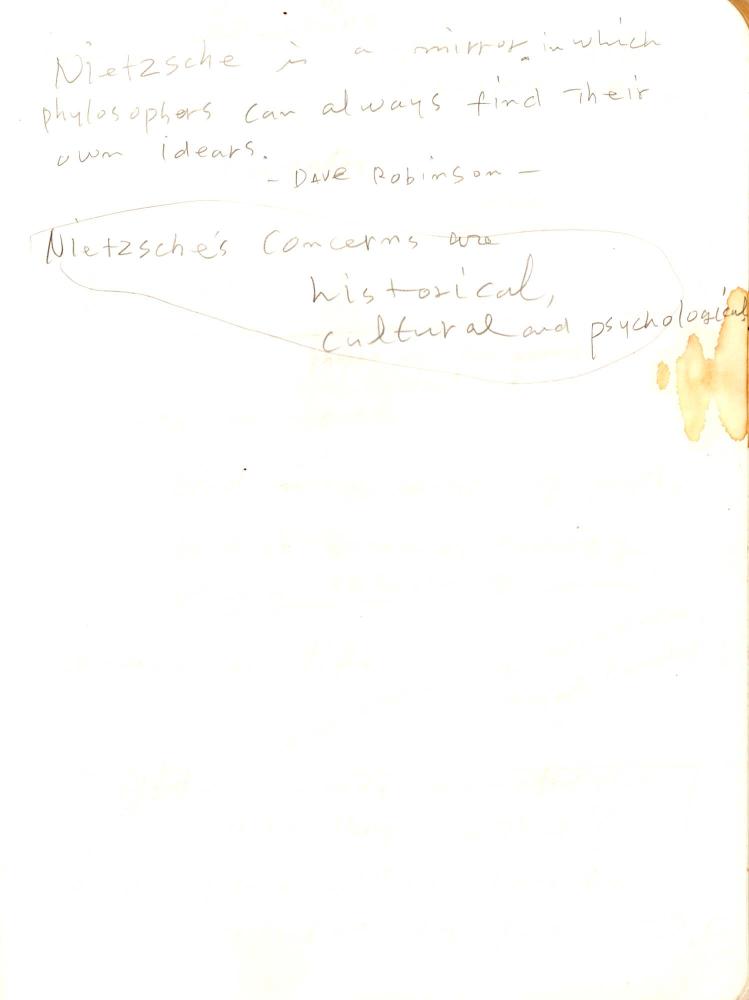 Nietzsche is a mirror in which
phylosophers can always find their
own idears.
- Dave Robinson -
Nietzsche's concerns are
historical,
cultural and psychological.